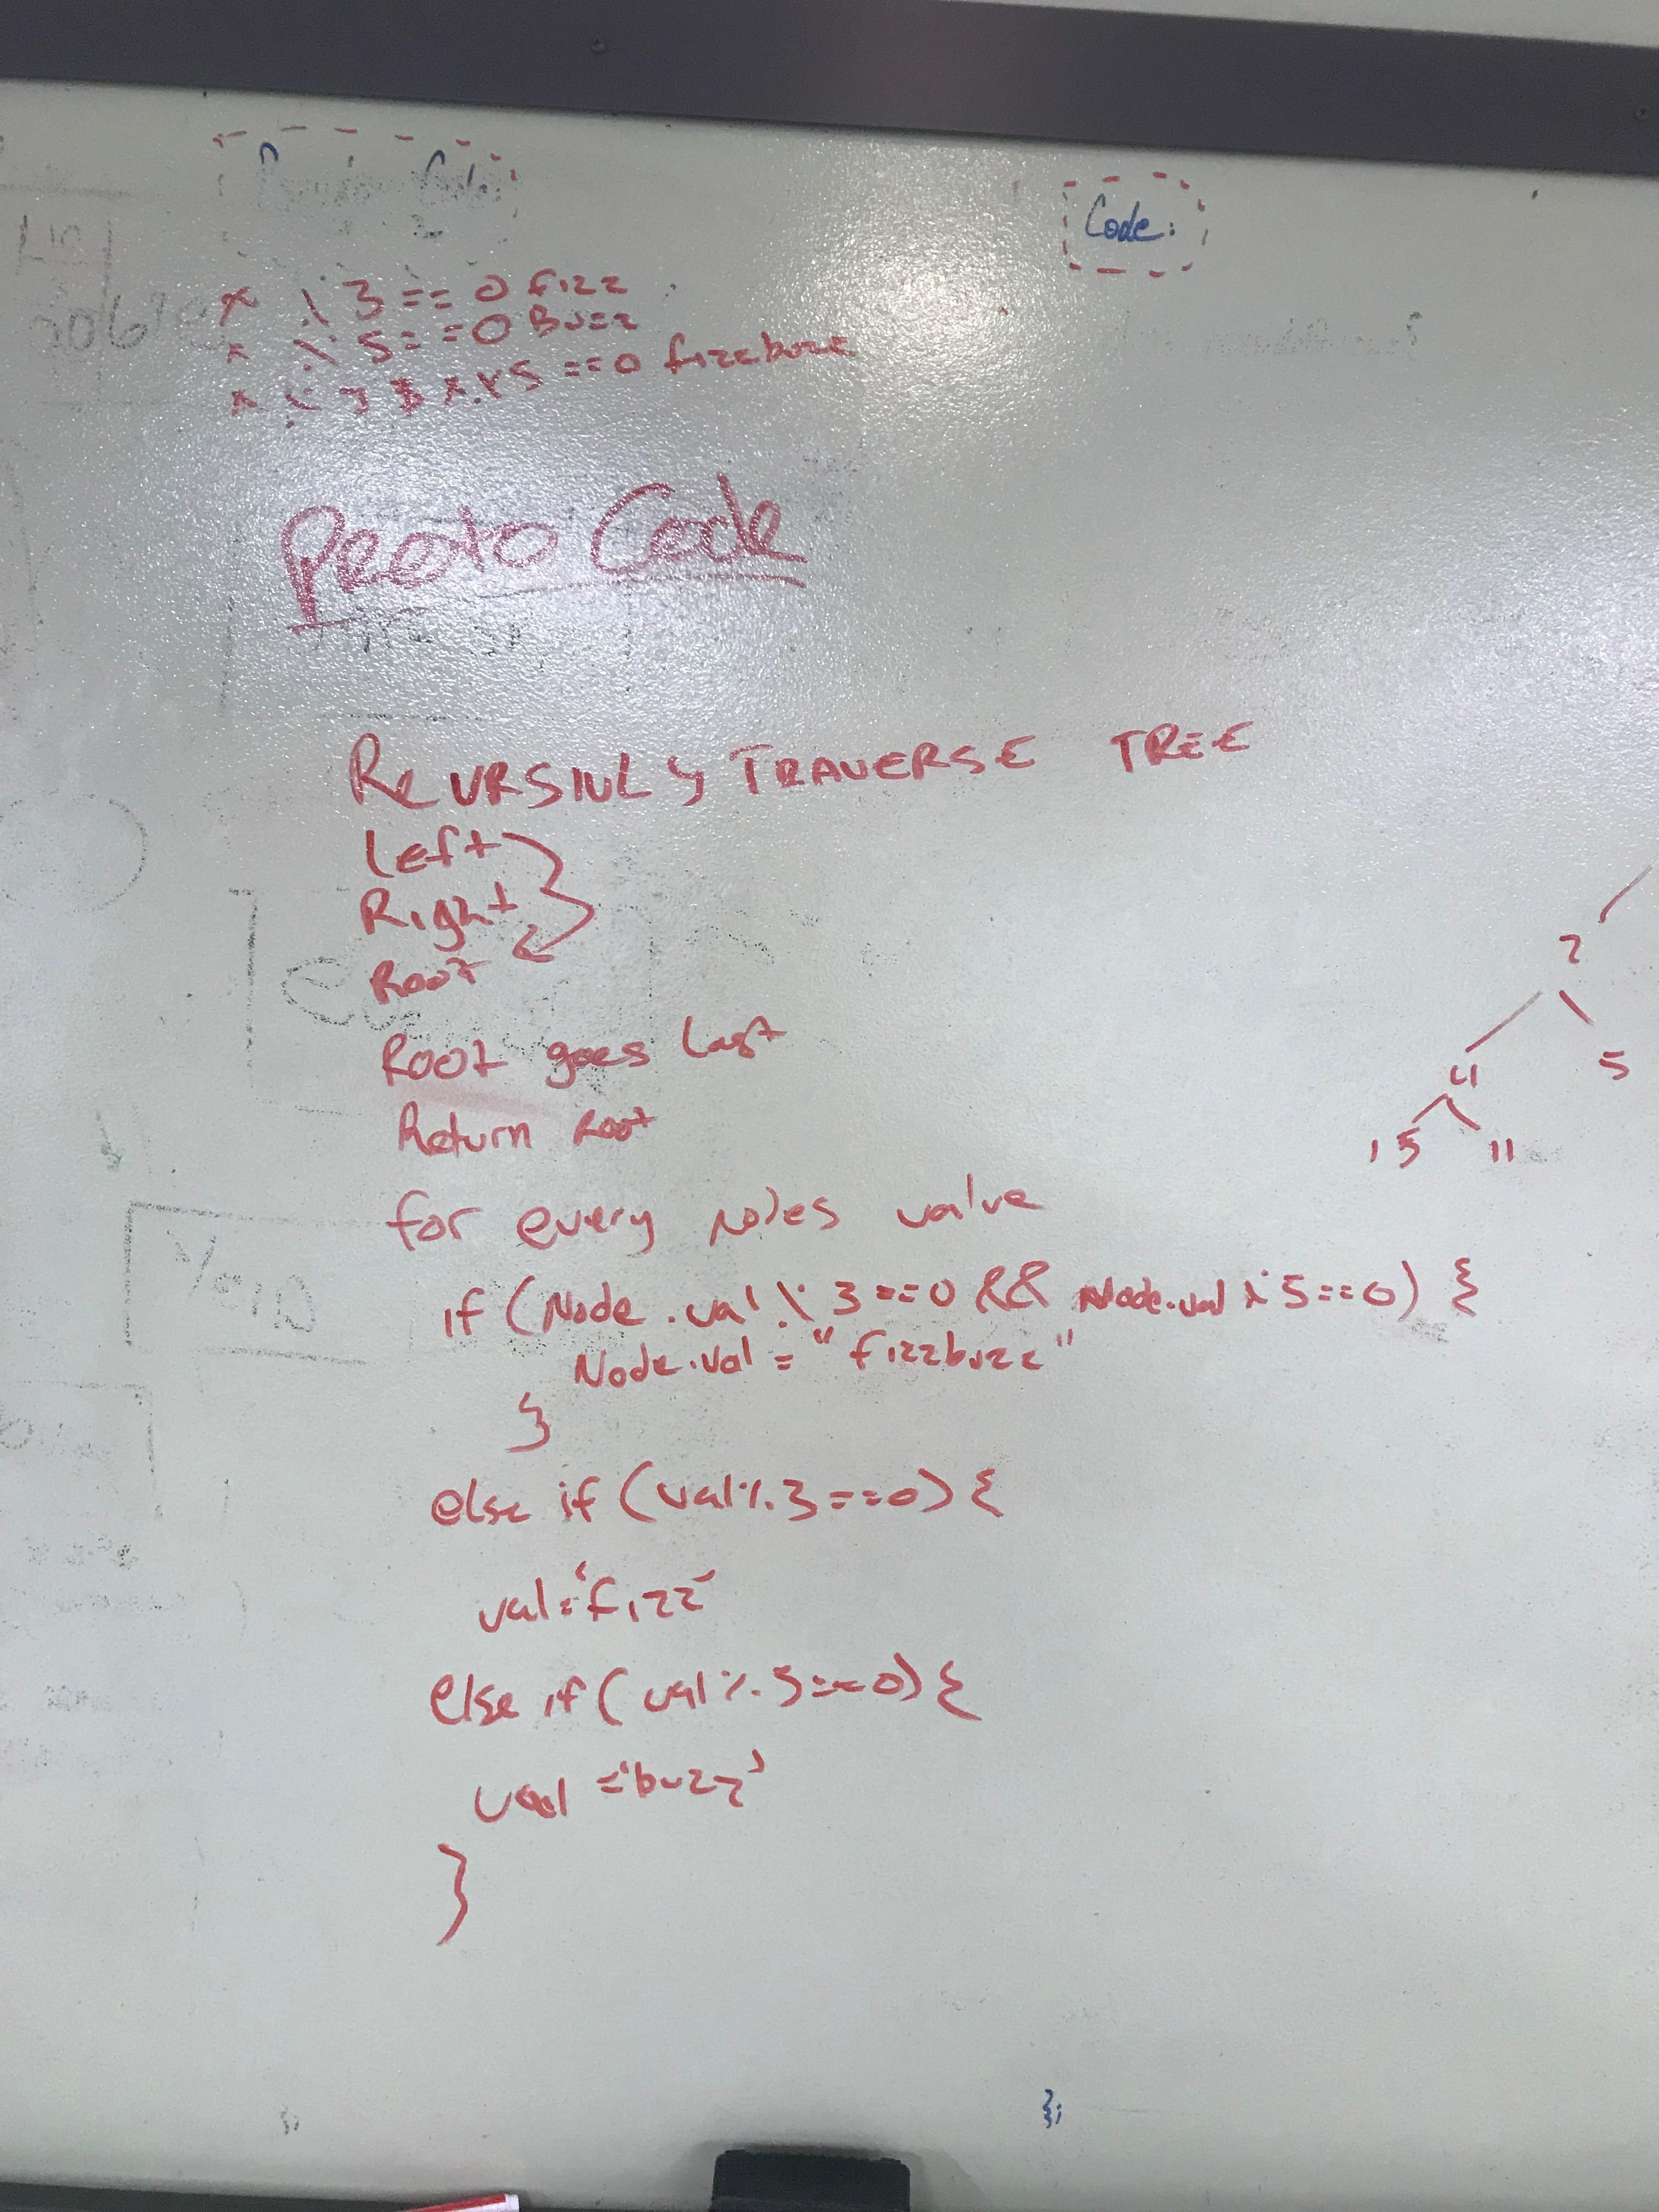 Code:
x \ 3 == 0 fizz
x \ 5 == 0 Buzz
== 0 fizzbuzz
Proto Code
RecURSIVLy TRAVERSE TREE
Left
Right
Root
Root goes last
Return Root
for every nodes value
if (Node.val \. 3 == 0 && Node.val % 5 == 0) {
Node.val = "fizzbuzz"
}
else if (val %. 3 == 0) {
val = 'fizz'
else if (val %. 5 == 0) {
val = 'buzz'
}
2
4
5
15
11
};